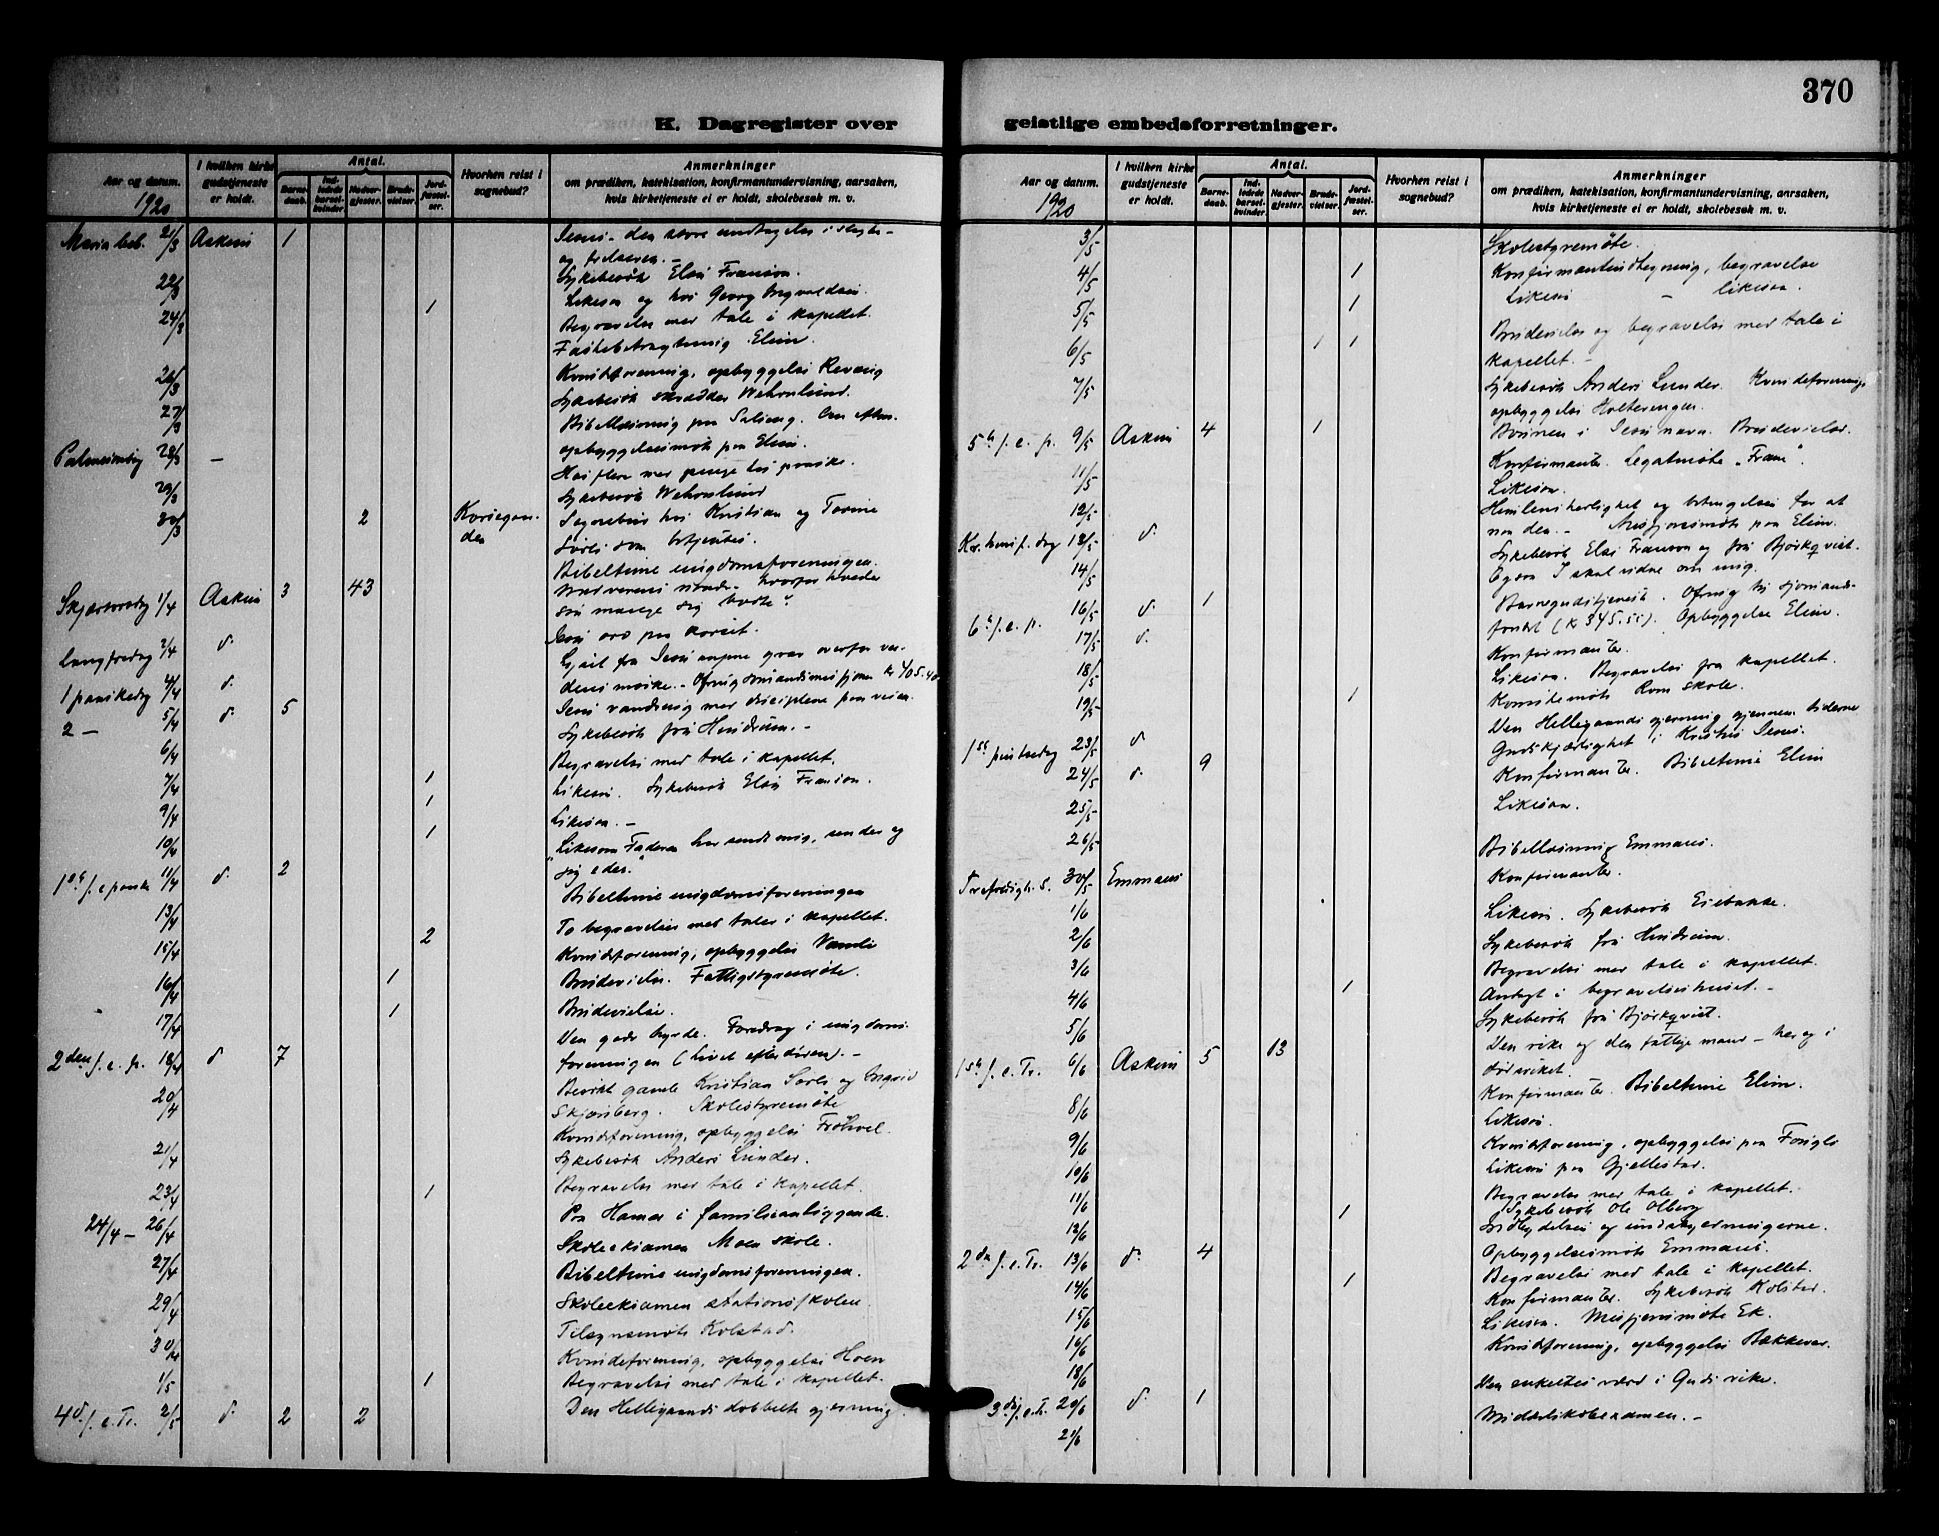 370
K. Dagregister over geistlige embedsforretninger.
Aar og datum. 1920
I hvilken kirke gudstjeneste er holdt.
Antal.
Barnedaab.
Indledede barselkvinder.
Nadvergjester.
Brudevielser.
Jordfæstelser.
Hvorhen reist i sognebud?
Anmerkninger
om prædiken, katekisation, konfirmantundervisning, aarsaken,
hvis kirketjeneste ei er holdt, skolebesøk m. v.
Maria beb. 21/3 Askim 1
og frelseren. –
22/3 Sykebesøk Elsi Franson.
Likesaa og hos Georg Ingvaldsen.
24/3 1 Begravelse med tale i kapellet.
Fastebetragtning Elim.
26/3 Kvindeforening, opbyggelse Revaug
Sykebesøk skrædder Wehnlund.
27/3
opbyggelsesmøte paa Elim.
Palmesøndag 28/3 –
29/3 Sykebesøk Wehnlund
30/3 2 Korsegarden Sognebud hos Kristian og Torine
Sørli som betjentes.
Bibeltime ungdomsforeningen.
Skjærtorsdag 1/4 Askim 3 43
saa mange sig borte?
Langfredag 2/4 d. Jesu ord paa korset.
1 paaskedag 4/4 d.
2 – 5/4 d. 5 Jesu vandring med disciplene paa veien.
6/4 Sykebesøk fru Hindrum. –
7/4 1 Begravelse med tale i kapellet.
9/4 1 Likesaa. Sykebesøk Elsi Franson.
10/4 1 Likesaa. –
1ste s. e. paaske 11/4 d. 2 Likesom Faderen har sendt mig, sender jeg eder."
13/4 Bibeltime ungdomsforeningen
15/4 2 To begravelser med taler i kapellet.
Kvindeforening, opbyggelse Vamli
16/4 1 Brudevielse. Fattigstyremøte.
17/4 1 Brudevielse.
2den s. e. p. 18/4 d 7 Den gode hyrde. Foredrag i ungdomsforeningen (Livet efter døden). –
20/4 Besøkt gamle Kristian Sørli og Ingvid
Skjønberg. Skolestyremøte
21/4 Kvindeforening, opbyggelse Frøhvel.
Sykebesøk Anders Lunder.
23/4 1 Begravelse med tale i kapellet.
24/4 – 26/4 Paa Hamar i familieanliggende.
27/4 Skoleeksamen Moen skole.
Bibeltime ungdomsforeningen.
29/4 Skoleeksamen stationsskolen.
30/4 Tilsynsmøte Kolstad.
Kvindeforening, opbyggelse Hoen
1/5 1 Begravelse med tale i kapellet.
4de s. e. Tr. 2/5 d. 2 2 Den Helligaands dobbelte gjerning.
Aar og datum. 1920
I hvilken kirke gudstjeneste er holdt.
Antal.
Barnedaab.
Indledede barselkvinder.
Nadvergjester.
Brudevielser.
Jordfæstelser.
Hvorhen reist i sognebud?
Anmerkninger
om prædiken, katekisation, konfirmantundervisning, aarsaken,
hvis kirketjeneste ei er holdt, skolebesøk m. v.
3/5 Skolestyremøte.
4/5 1 Konfirmantindtegning, begravelse
5/5 1 Likesaa – likesaa.
6/5 1 1 Brudevielse og begravelse med tale i
kapellet. –
7/5 Sykebesøk Anders Lunder. Kvindeforening
opbyggelse Holterengen.
5te s. e. p. 9/5 Askim 4 1 Bønnen i Jesu navn. Brudevielse.
11/5 Konfirmanter. Legatmøte "Fram".
12/5 Likesaa.
Kr. himf. dag 13/5 d. Himlens herlighet og betingelsen for at
naa den. – Misjonsmøte paa Elim.
14/5 Sykebesøk Elsi Franson og fru Bjørkqvist.
6te s. e. p. 16/5 d. 1 Ogsaa I skal vidne om mig.
17/5 d. Barnegudstjeneste. Ofring til sjømandsfondet (kr 345.55). Opbyggelse Elim.
18/5 Konfirmanter.
19/5 1 Likesaa. Begravelse fra kapellet.
Komitemøte Rom skole.
1ste pintsedag 23/5 d Den Helligaands gjerning gjennem tiderne
24/5 d. 9 Guds kjærlighet i Kristus Jesus.
25/5 Konfirmanter. Bibeltime Elim
26/5 Likesaa.
Trefoldigh. s. 30/5 Emmaus Bibellæsning Emmaus.
1/6 Konfirmanter.
2/6 Likesaa. Sykebesøk
3/6 Sykebesøk fru Hindrum.
4/6 1 Begravelse med tale i kapellet.
Andagt i begravelseshuset. –
5/6 Sykebesøk fru Bjørkqvist.
1ste s. e. Tr. 6/6 Askim 5 13 Den rike og den fattige mand – her og i
dødsriket.
8/6 Konfirmanter. Bibeltime Elim.
9/6 Likesaa.
10/6 Kvindeforening, opbyggelse paa
11/6 Likesaa paa Gjellestad.
12/6 1 Begravelse med tale i kapellet. –
Sykebesøk Ole Olberg
2den s. e. Tr. 13/6 d. 4 Indbydelsen og undskyldningerne.
Opbyggelsesmøte Emmaus.
14/6 1 Begravelse med tale i kapellet.
15/6 Konfirmanter. Sykebesøk Kolstad.
16/6 Likesaa. Misjonsmøte Ek.
18/6 Kvindeforening, opbyggelse Bækkevar.
3die s. e. Tr. 20/6 d. 1 Den enkeltes værd i Guds rike.
21/6 Middelskoleexamen. –